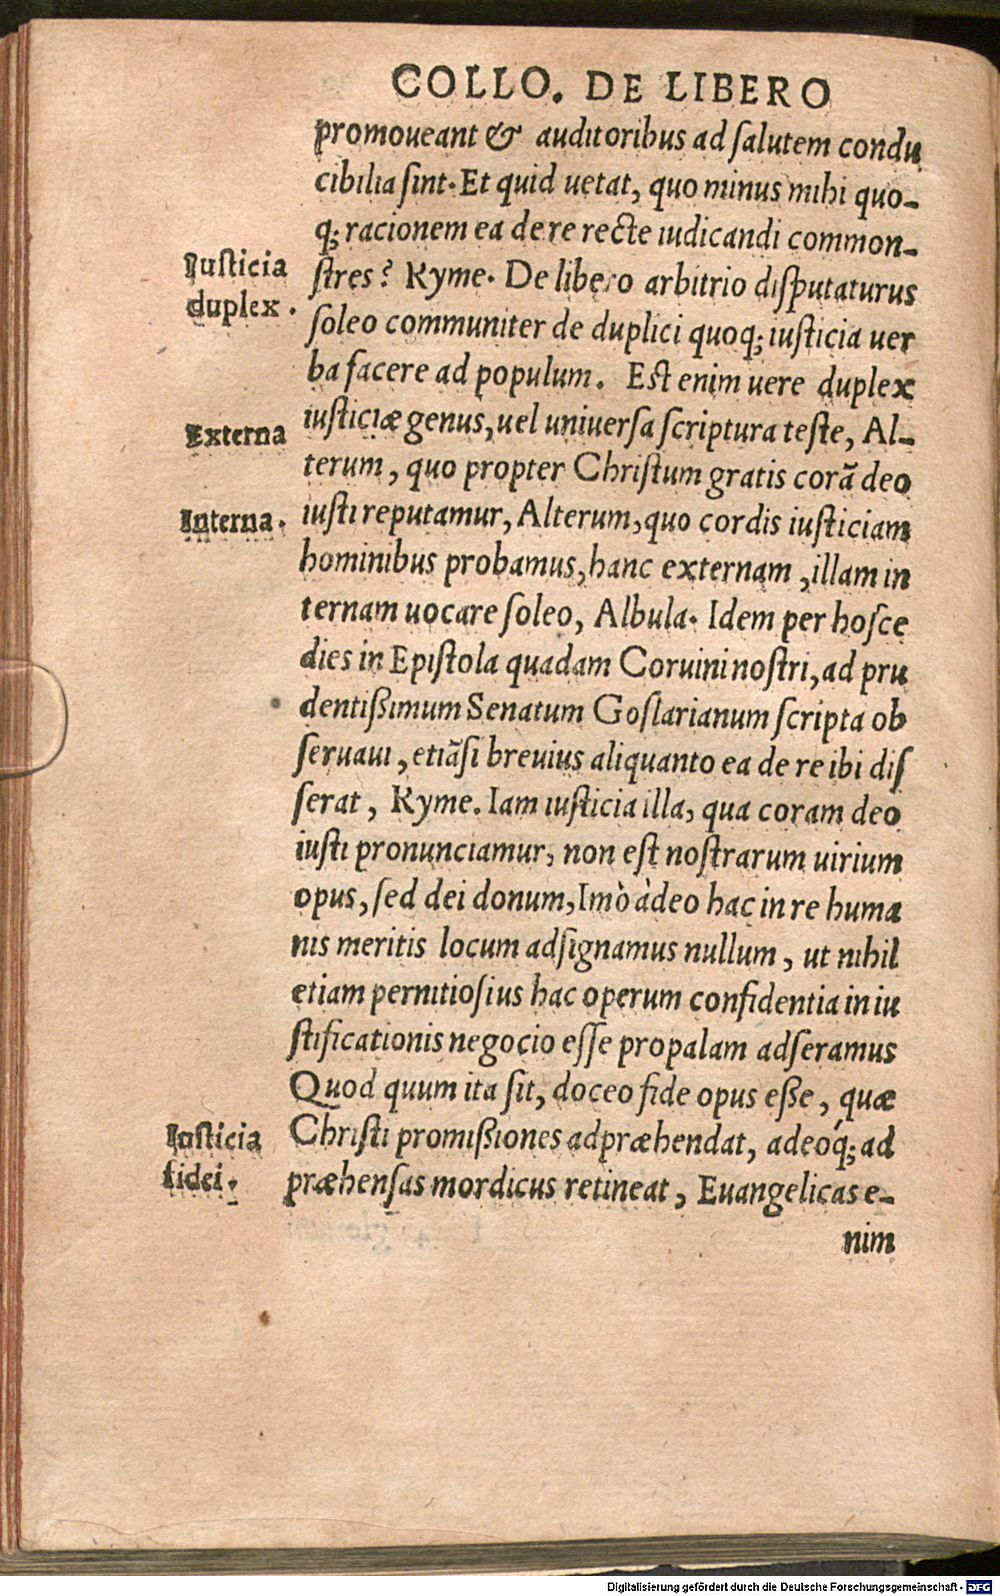 COLLO. DE LIBERO
promoueant & auditoribus ad ſalutem condu
cibilia ſint. Et quid uetat, quo minus mihi quo-
q; racionem ea de re recte iudicandi common-
Iuſticia
duplex.
ſtres? Kyme. De libero arbitrio diſputaturus
ſoleo communiter de duplici quoq; iuſticia uer
ba facere ad populum. Eſt enim uere duplex
Externa
iuſticiæ genus, uel uniuerſa ſcriptura teſte, Al-
terum, quo propter Chriſtum gratis corā deo
Interna.
iuſti reputamur, Alterum, quo cordis iuſticiam
hominibus probamus, hanc externam, illam in
ternam uocare ſoleo, Albula. Idem per hoſce
dies in Epiſtola quadam Coruini noſtri, ad pru
dentißimum Senatum Goſlarianum ſcripta ob
ſeruaui, etiāſi breuius aliquanto ea de re ibi diſ
ſerat, Kyme. Iam iuſticia illa, qua coram deo
iuſti pronunciamur, non eſt noſtrarum uirium
opus, ſed dei donum, Imò àdeo hac in re huma
nis meritis locum adſignamus nullum, ut nihil
etiam pernitioſius hac operum confidentia in iu
ſtificationis negocio eſſe propalam adſeramus
Quod quum ita ſit, doceo fide opus eße, quæ
Iuſticia
fidei.
Chriſti promißiones adpræhendat, adeóq; ad
præhenſas mordicus retineat, Euangelicas e-
nim
Digitalisierung gefördert durch die Deutsche Forschungsgemeinschaft - DFG